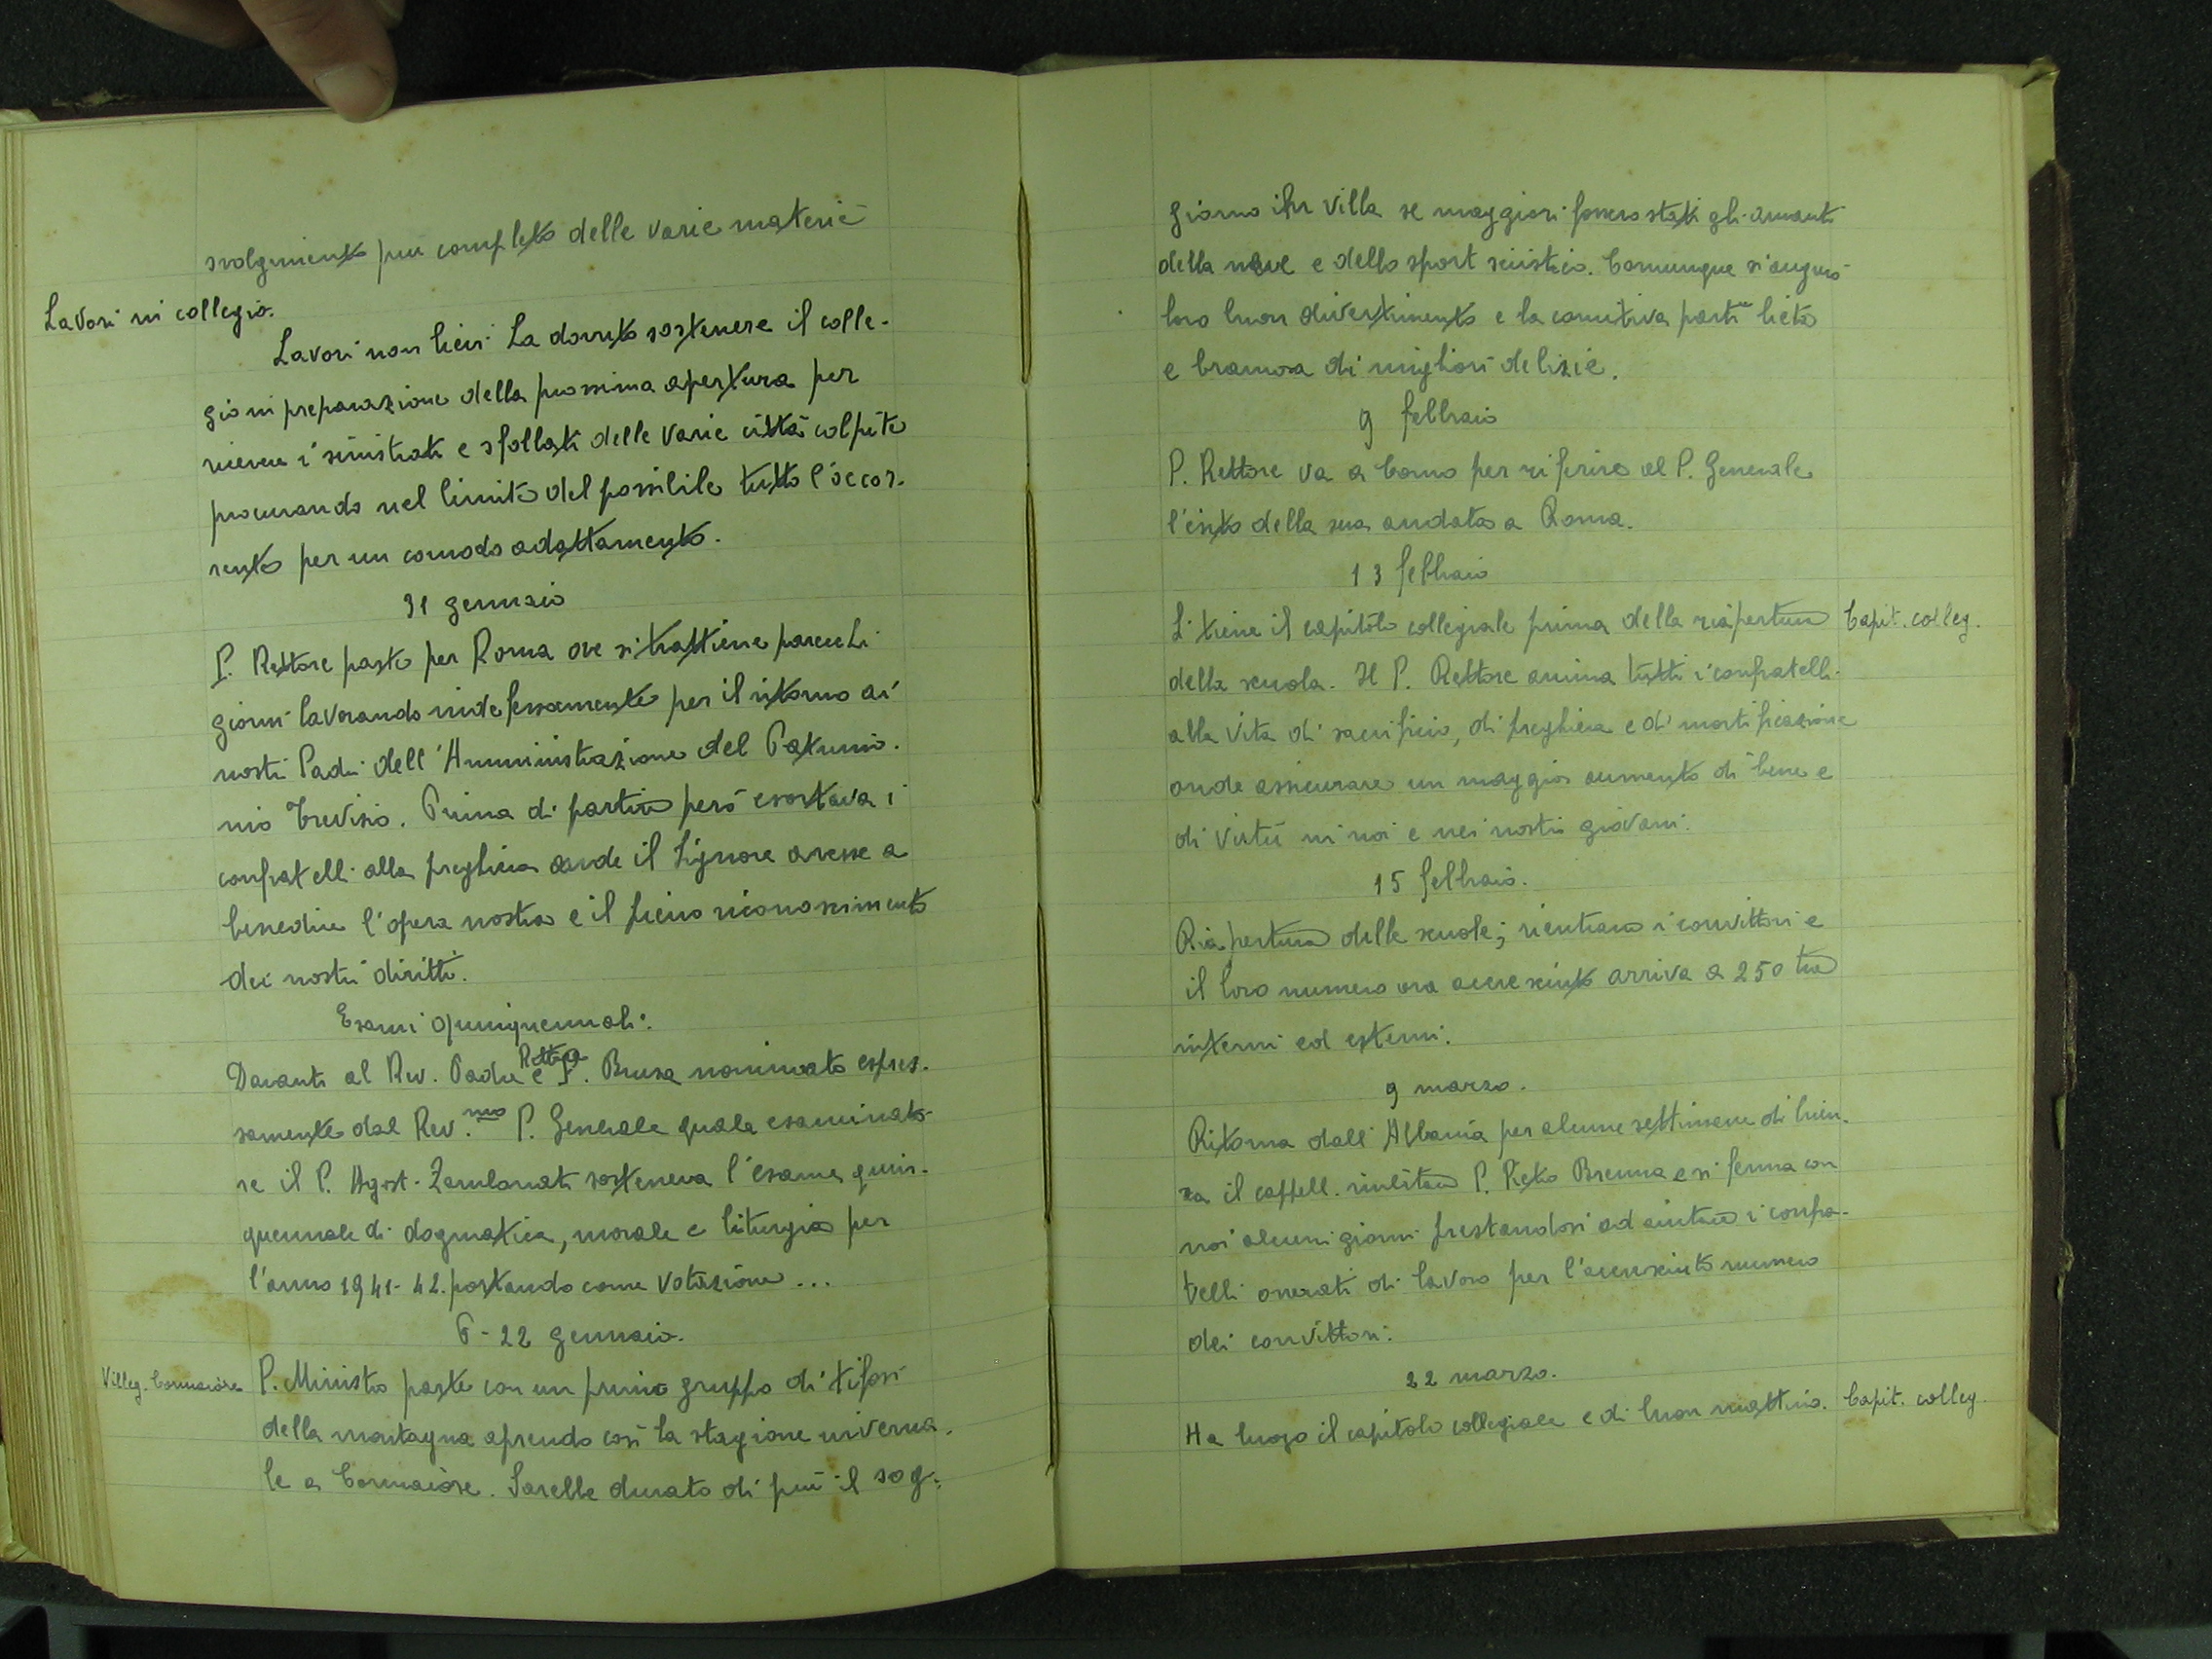 svolgimento piu completo delle varie materie
Lavori in collegio.
Lavori non lievi ha dovuto sostenere il colle-
gio in preparazione della prossima apertura per
ricevere i sinistrati e sfollati delle varie città colpite
procurando nel limite del possibile tutto l'occor-
rente per un comodo adattamento.
31 gennaio
P. Rettore parte per Roma ove si trattiene parecchi
giorni lavorando indefessamente per il ritorno ai
nostri Padri dell'Amministrazione del Patrimo-
nio Trevisio. Prima di partire però esortava i
confratelli alla preghiera onde il Signore avesse a
benedire l'opera nostra e il pieno riconoscimento
dei nostri diritti.
Esami quinquennali.
Davanti al Rev. Padre Rettore e P. Brusa nominato espres-
samente dal Rev.mo P. Generale quale esaminato-
re il P. Agost. Zambonati sosteneva l'esame quin-
quennale di dogmatica, morale e liturgia per
l'anno 1941-42. portando come votazione ...
6-22 gennaio.
Villeg. Cormaiore
P. Ministro parte con un primo gruppo di tifosi
della montagna aprendo così la stagione inverna-
le a Cormaiore. Sarebbe durato di più il sog-
giorno in villa se maggiori fossero stati gli amanti
della neve e dello sport sciistico. Comunque si augurò
loro buon divertimento e la comitiva partì lieta
e bramosa di migliori delizie.
9 febbraio
P. Rettore va a Como per riferire al P. Generale
l'esito della sua andata a Roma.
13 febbraio
Si tiene il capitolo collegiale prima della riapertura
Capit. colleg.
della scuola. Il P. Rettore anima tutti i confratelli
alla vita di sacrificio, di preghiera e di mortificazione
onde assicurare un maggior aumento di bene e
di virtù in noi e nei nostri giovani.
15 febbraio.
Riapertura delle scuole; rientrano i convittori e
il loro numero ora accresciuto arriva a 250 tra
interni ed esterni.
9 marzo.
Ritorna dall'Albania per alcune settimane di licen-
za il cappell. militare P. Pietro Brenna e si ferma con
noi alcuni giorni prestandosi ad aiutare i confra-
telli onerati di lavoro per l'accresciuto numero
dei convittori.
22 marzo.
Ha luogo il capitolo collegiale e di buon mattino.
Capit. colleg.